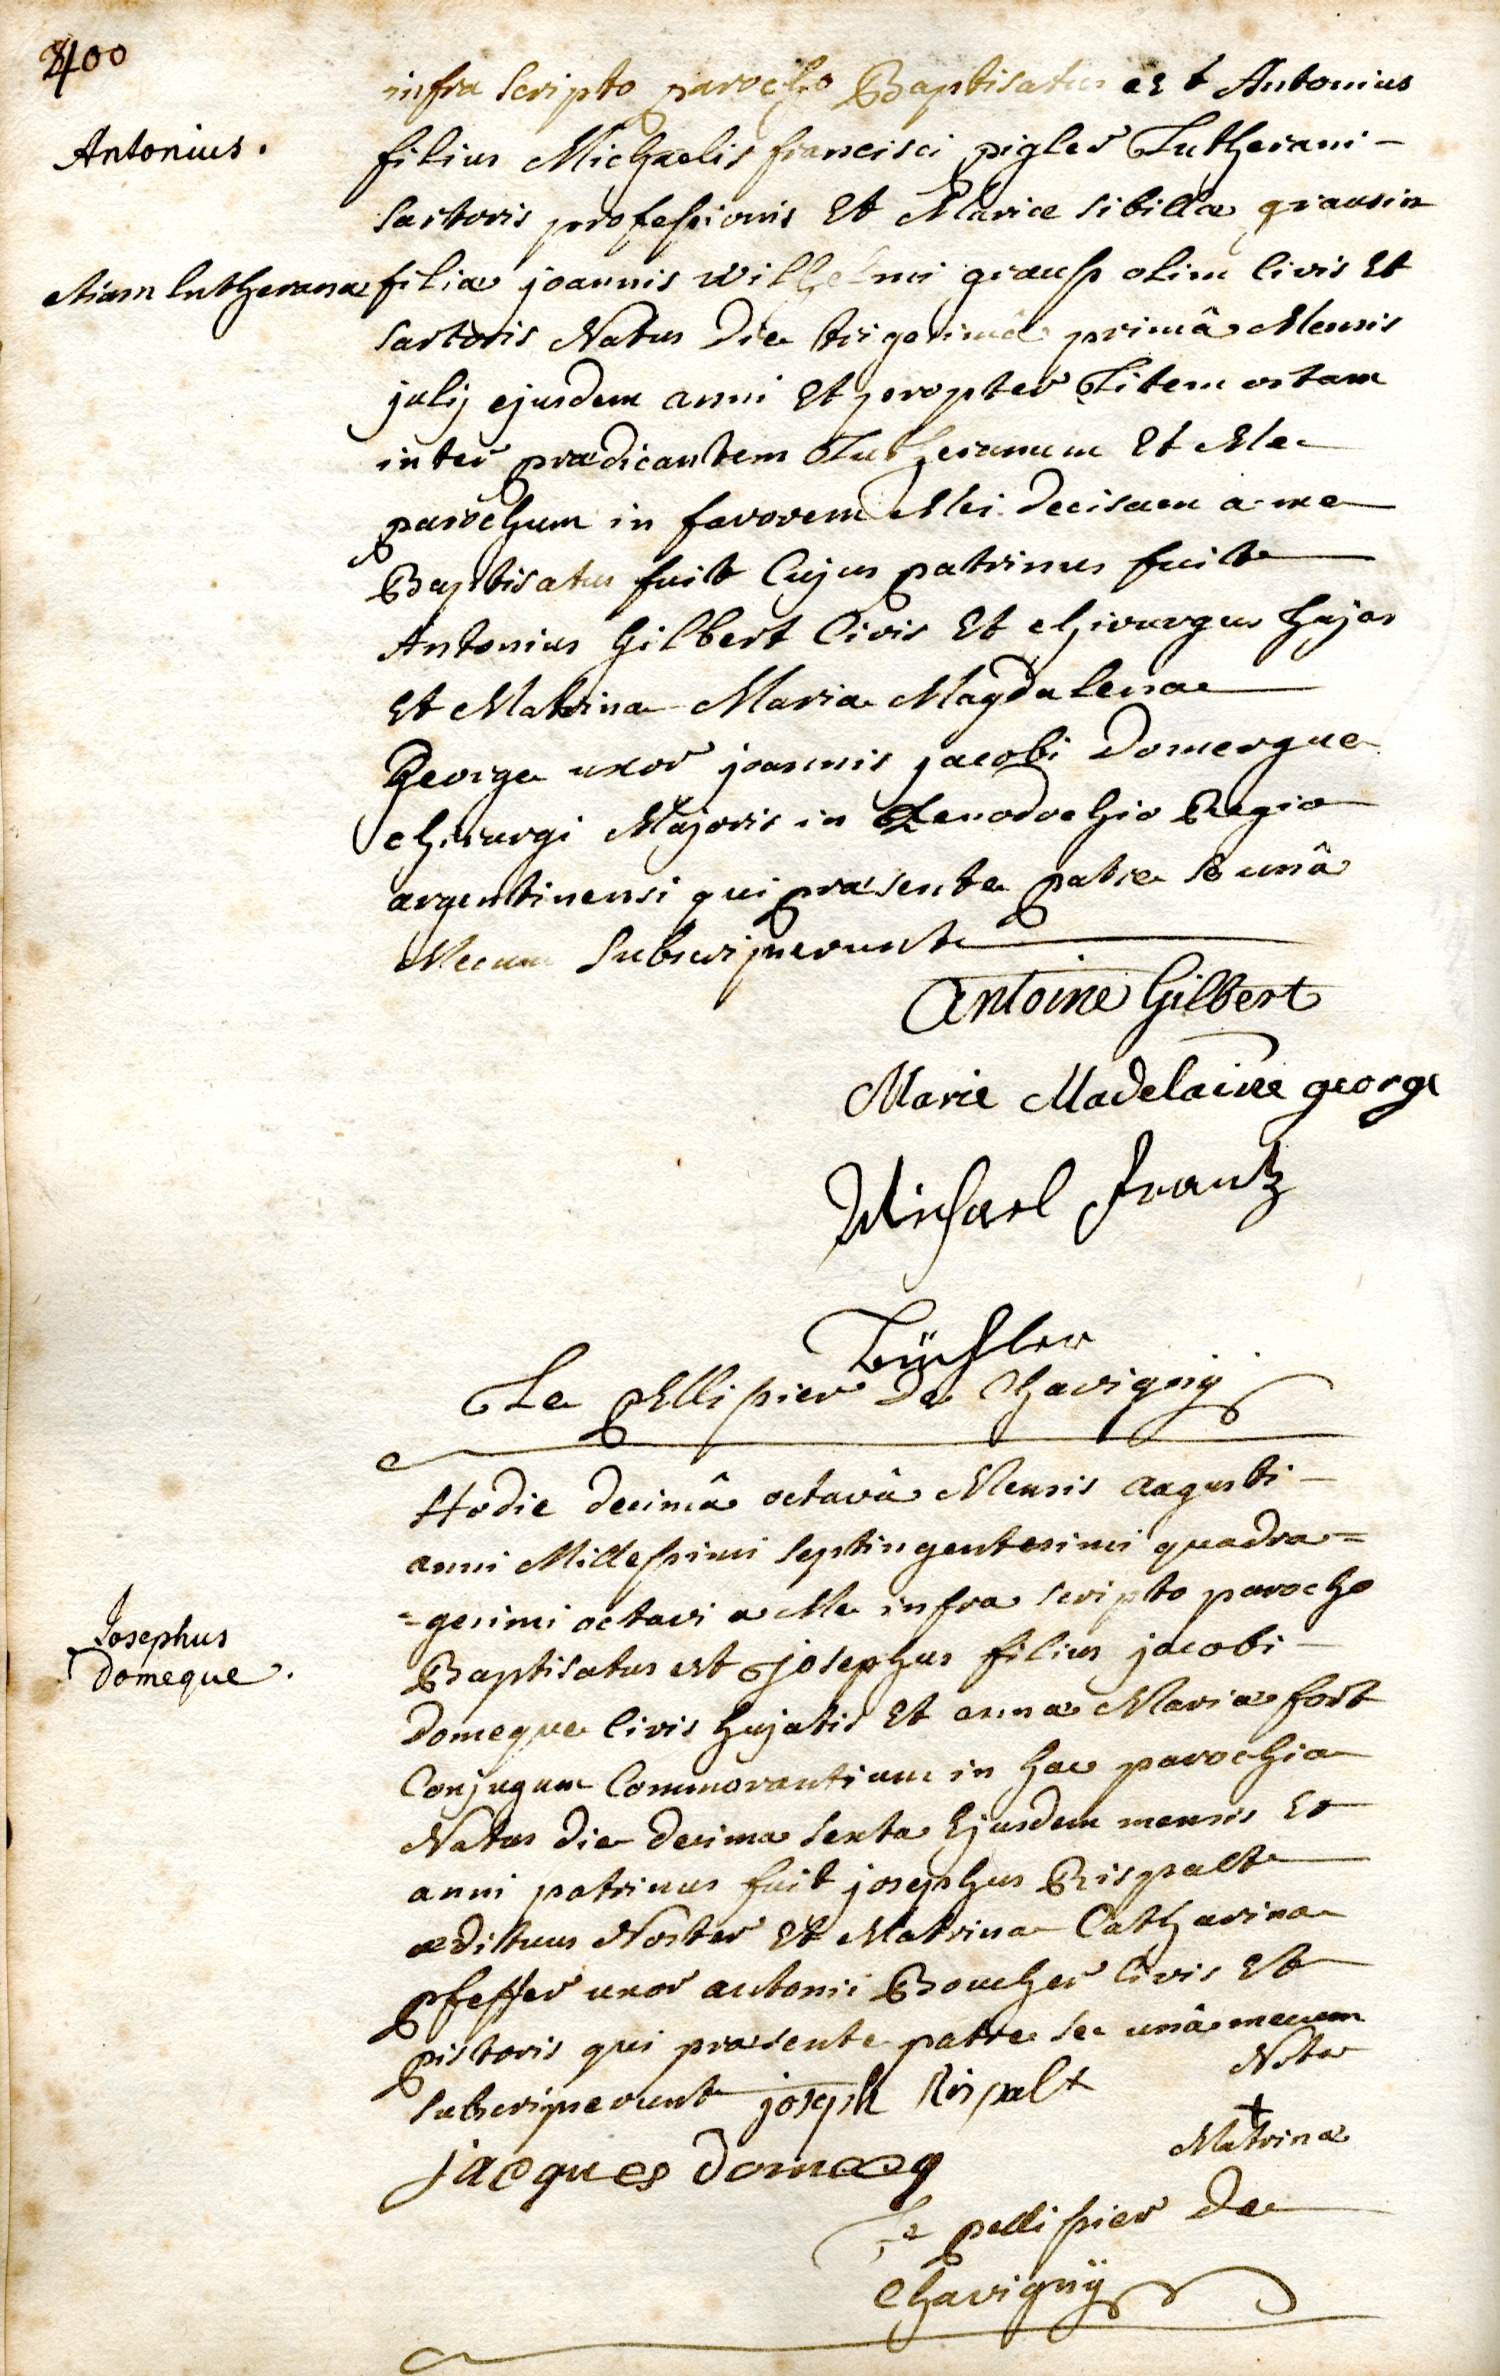 400
infra scripto parocho Baptisatus est Antonius
Antonius.
filius Michaelis francisci pigler Lutherani -
sartoris professionis Et Mariæ sibillæ grausin
etiam lutheranæ
filiæ joannis wilhelmi grauss olim Civis Et
sartoris Natus die trigesimâ primâ Mensis
julij ejusdem anni Et propter Litem ortam
inter prædicantem Lutheranum Et Me
parochum in favorem Mei decisam a me
Baptisatus fuit Cujus patrinus fuit
Antonius Gilbert Civis Et chirurgus hujas
Et Matrina Maria Magdalena
George uxor joannis jacobi Domergue
chirurgi Majoris in Xenodochio Regio
argentinensi qui præsente patre se unâ
Mecum subscripserunt
Antoine Gilbert
Marie Madelaine george
Michael Frantz
Büchler
Le pellissier De Chavigny
Hodie decimâ octavâ Mensis augusti -
anni Millessimi septingentesimi quadra=
=gesimi octavi a Me infra scripto parocho
Josephus
Domeque.
Baptisatus est josephus filius jacobi -
Domeque Civis hujatis Et annæ Mariæ fort
Conjugum Commorantium in hac parochia
Natus die decima sexta Ejusdem mensis Et
anni patrinus fuit josephus Rispalt
ædituus Noster Et Matrina Catharina
pfeffer uxor antonii Boucher Civis Et
pistoris qui præsente patre se unâ mecum
subscripserunt joseph Rispalt
Nota
†
Matrinæ
jacques domecq
Le pellissier De
Chavigny